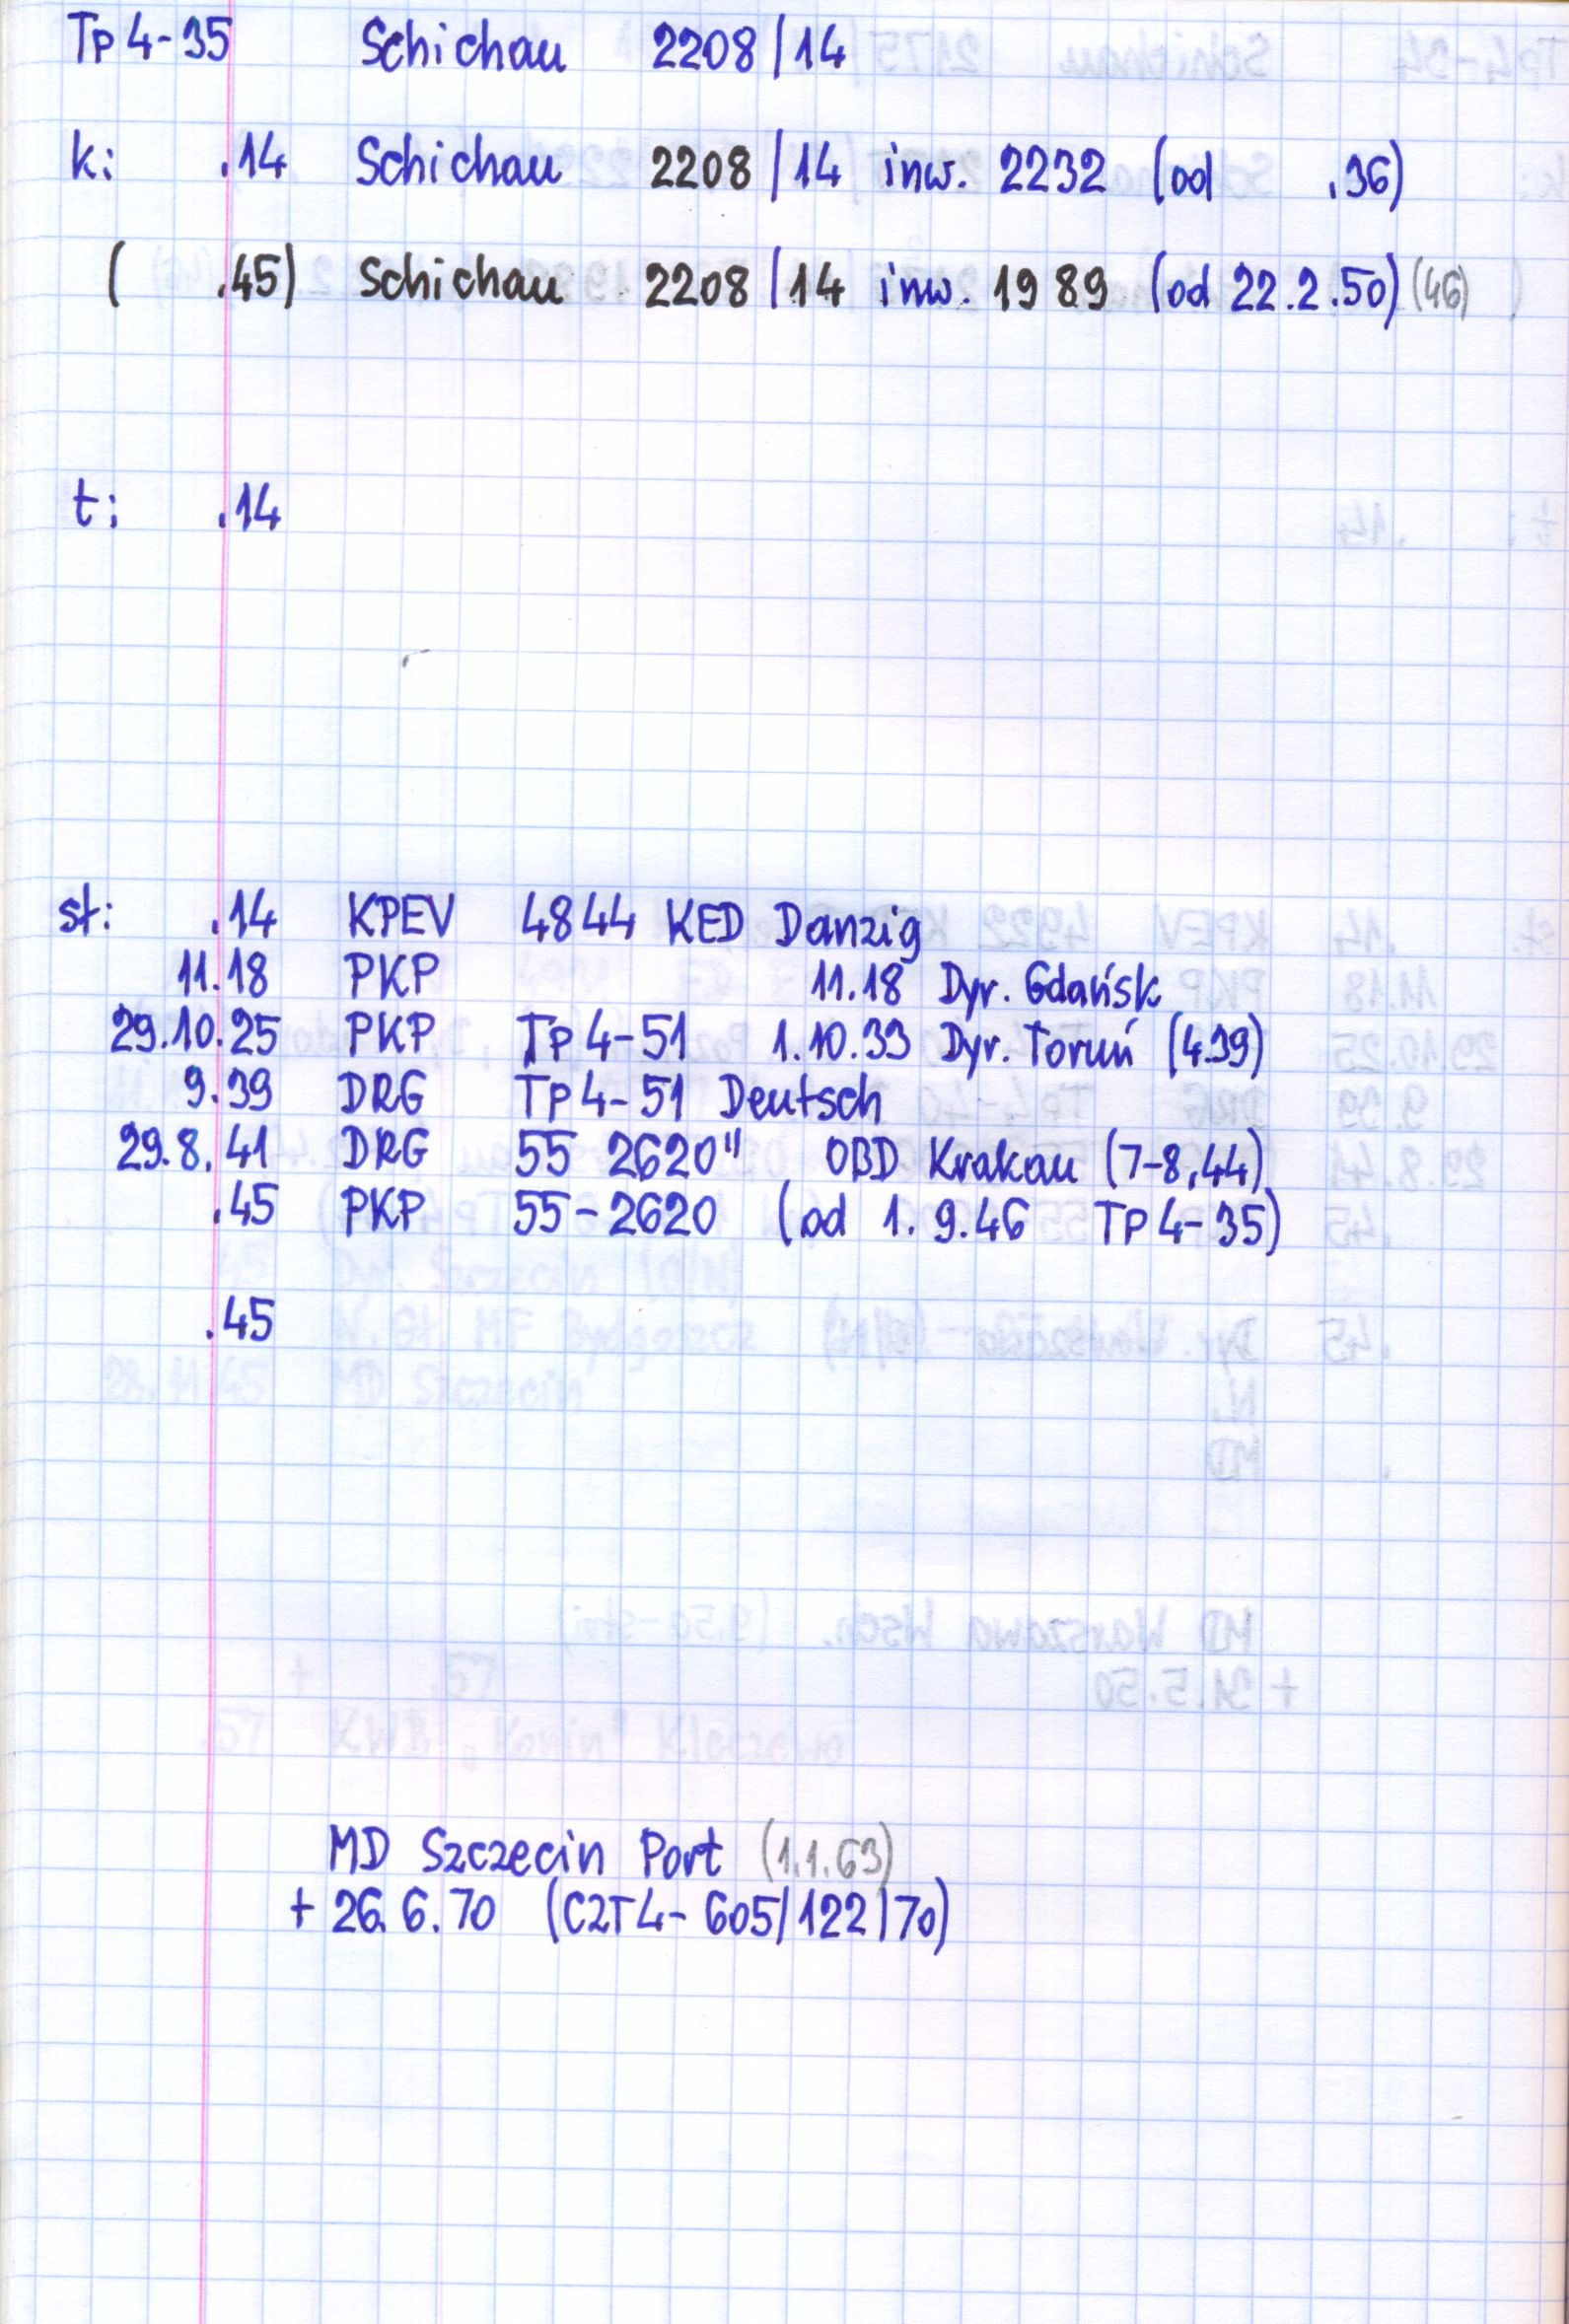 Tp 4-35 Schichau 2208/14
k: .14 Schichau 2208/14 inw. 2232 (od .36)
( .45) Schichau 2208/14 inw. 1989 (od 22.2.50) (46)
t: .14
st: .14 KPEV 4844 KED Danzig
11.18 PKP 11.18 Dyr. Gdańsk
29.10.25 PKP Tp 4-51 1.10.33 Dyr. Toruń (4.39)
9.39 DRG Tp 4-51 Deutsch
29.8.41 DRG 55 2620" OBD Krakau (7-8.44)
.45 PKP 55-2620 (od 1.9.46 Tp 4-35)
.45
MD Szczecin Port (1.1.63)
+ 26.6.70 (C2T4-605/122/70)